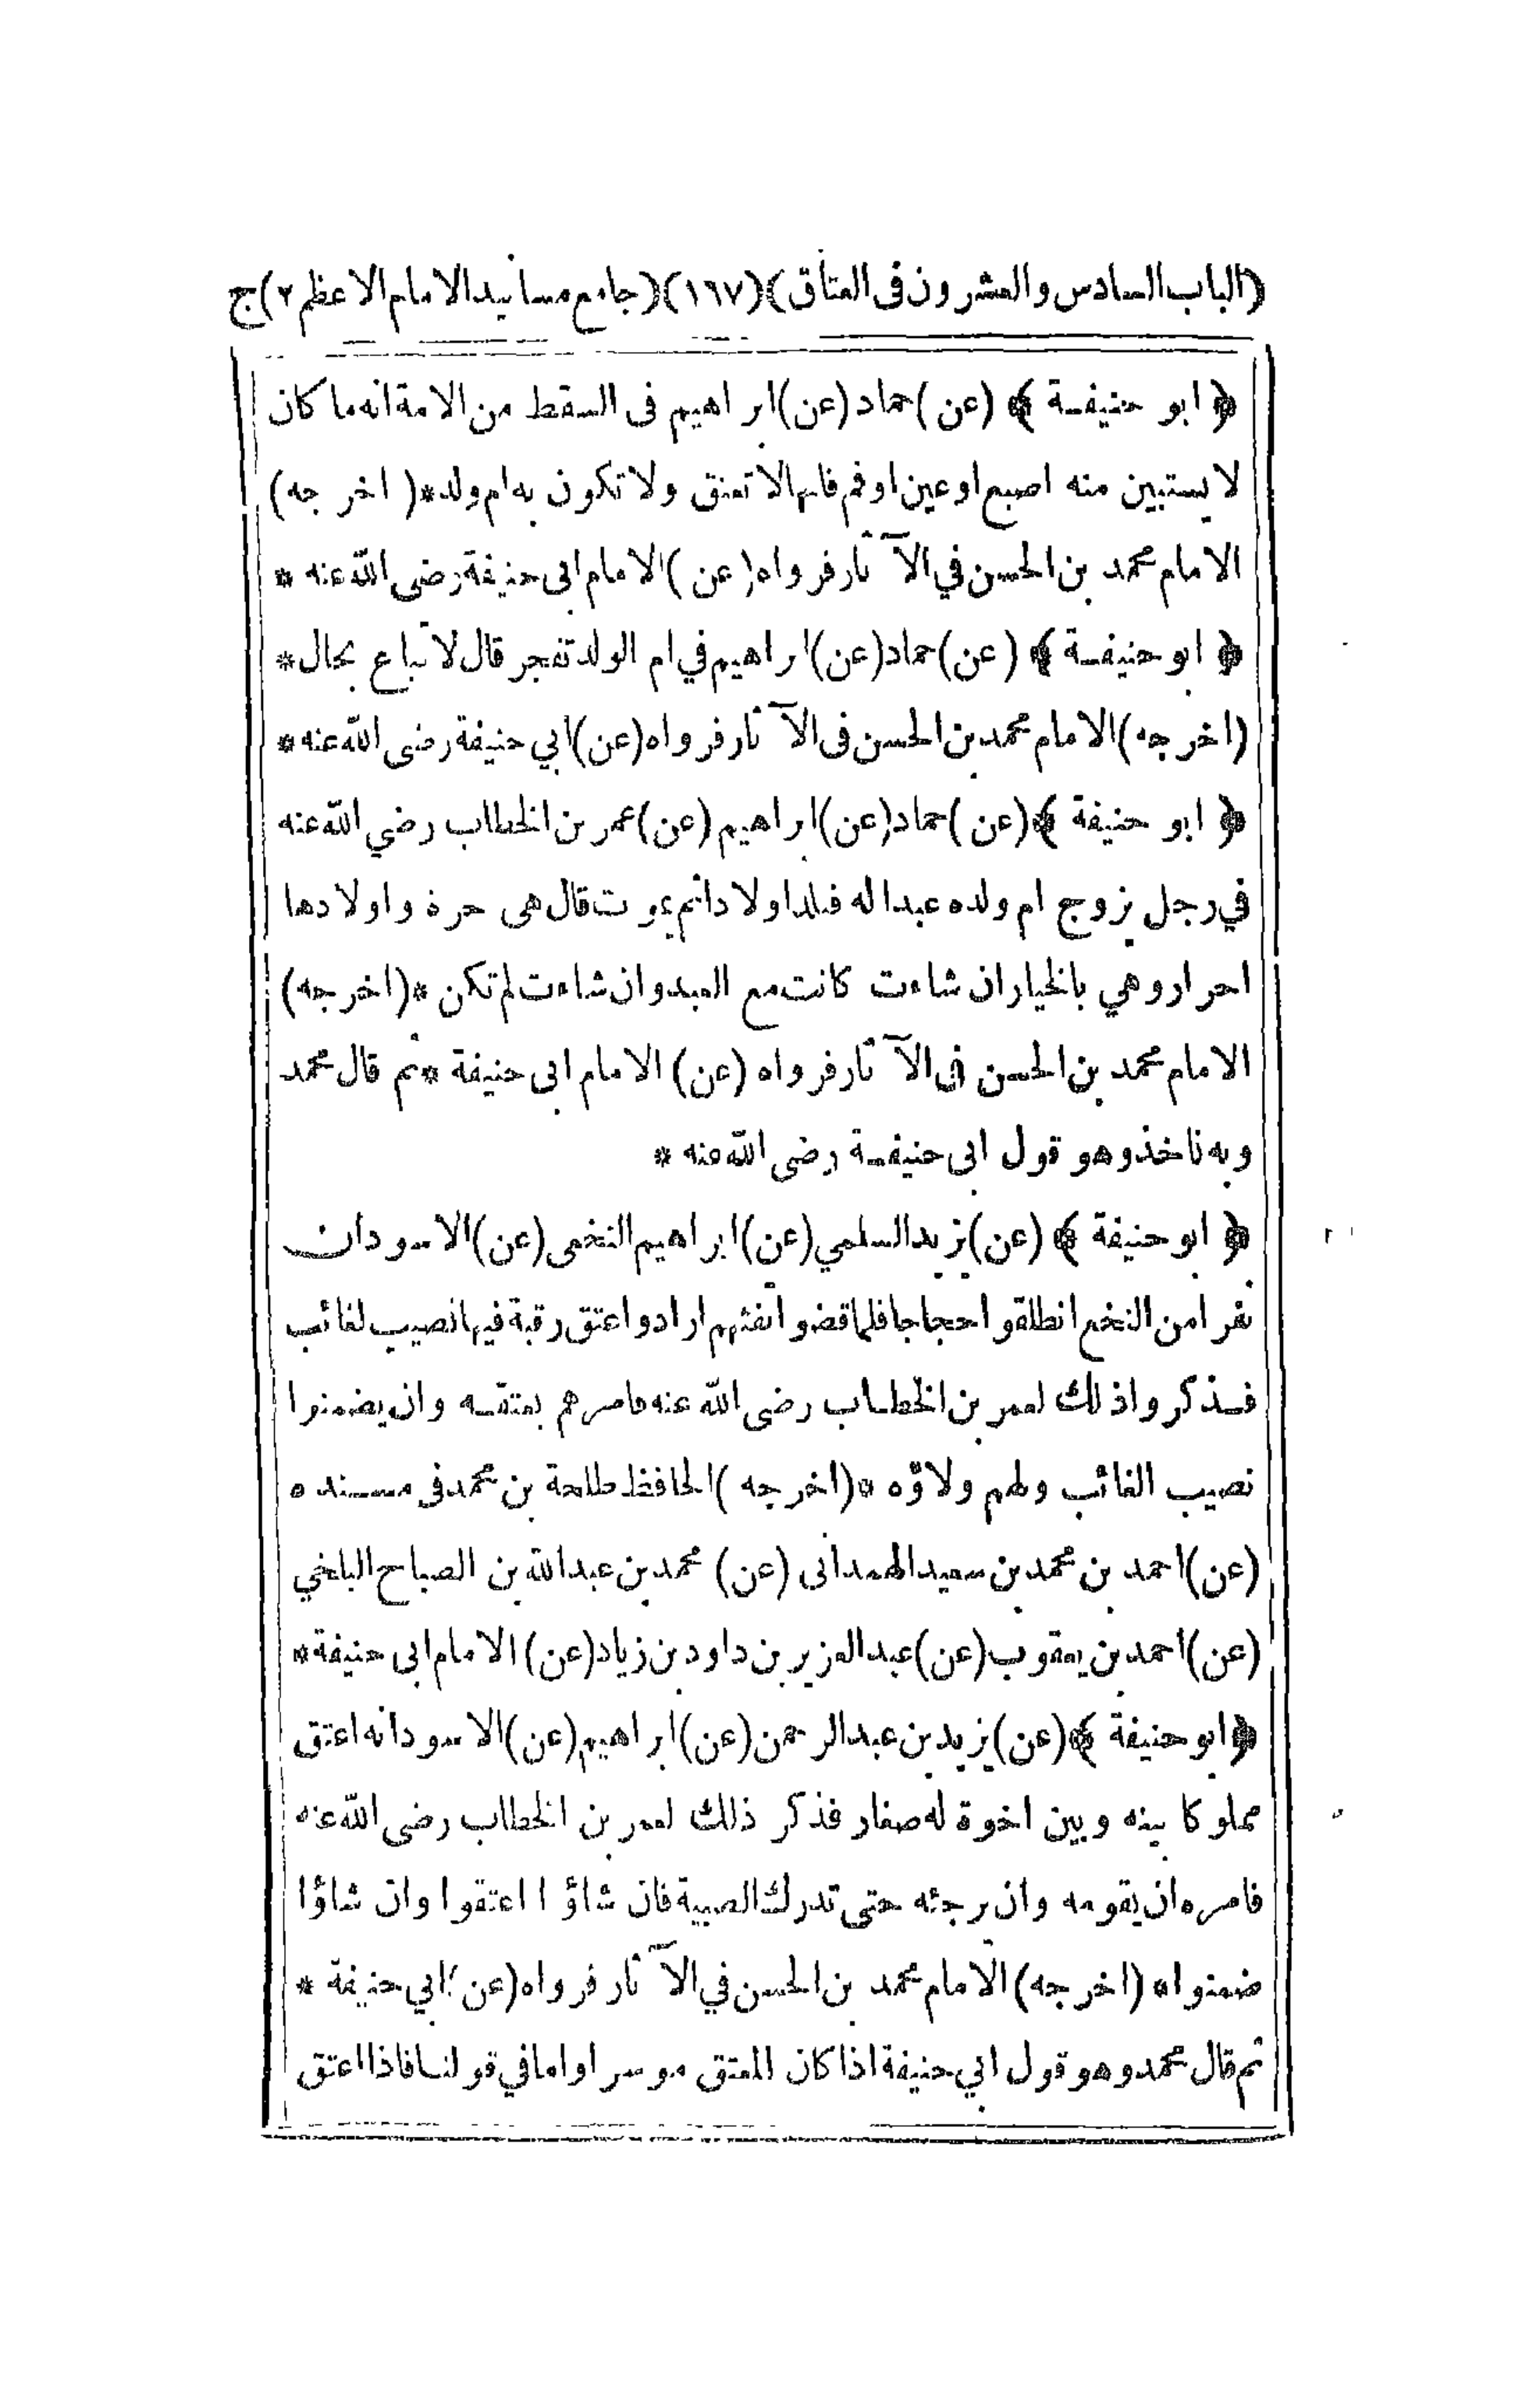 (الباب السادس والعشرون في العتاق) (١٦٧) (جامع مسانيد الامام الاعظم ٢) ج
﴿ ابو حنيفة ﴾ (عن) حماد (عن) ابراهيم فى السقط من الامة انه ما كان
لا يستبين منه اصبع او عين او فم فانها لا تعتق ولا تكون به ام ولد * (اخرجه)
الامام محمد بن الحسن في الآثار فرواه (عن) الامام ابى حنيفة رضى الله عنه *
﴿ ابو حنيفة ﴾ (عن) حماد (عن) ابراهيم في ام الولد تفجر قال لا تباع بحال *
(اخرجه) الامام محمد بن الحسن فى الآثار فرواه (عن) ابي حنيفة رضى الله عنه *
﴿ ابو حنيفة ﴾ (عن) حماد (عن) ابراهيم (عن) عمر بن الخطاب رضي الله عنه
في رجل يزوج ام ولده عبدا له فتلد اولادا ثم يموت قال هى حرة واولادها
احرار وهي بالخيار ان شاءت كانت مع العبد وان شاءت لم تكن * (اخرجه)
الامام محمد بن الحسن فى الآثار فرواه (عن) الامام ابى حنيفة * ثم قال محمد
وبه ناخذ وهو قول ابى حنيفة رضى الله عنه *
﴿ ابو حنيفة ﴾ (عن) يزيد السلمي (عن) ابراهيم النخعى (عن) الاسود ان
نفرا من النخع انطلقوا حجاجا فلما قضوا تفثهم ارادوا عتق رقبة فيها نصيب لغائب
فذكروا ذلك لعمر بن الخطاب رضى الله عنه فامرهم بعتقه وان يضمنوا
نصيب الغائب ولهم ولاؤه * (اخرجه) الحافظ طلحة بن محمد فى مسنده
(عن) احمد بن محمد بن سعيد الهمدانى (عن) محمد بن عبدالله بن الصباح البلخي
(عن) احمد بن يعقوب (عن) عبد العزيز بن داود بن زياد (عن) الامام ابى حنيفة *
﴿ ابو حنيفة ﴾ (عن) يزيد بن عبد الرحمن (عن) ابراهيم (عن) الاسود انه اعتق
مملوكا بينه وبين اخوة له صغار فذكر ذلك لعمر بن الخطاب رضى الله عنه
فامره ان يقومه وان يرجئه حتى تدرك الصبية فان شاؤا اعتقوا وان شاؤا
ضمنوا * (اخرجه) الامام محمد بن الحسن في الآثار فرواه (عن) ابي حنيفة *
ثم قال محمد وهو قول ابي حنيفة اذا كان المعتق موسرا واما في قولنا فاذا اعتق